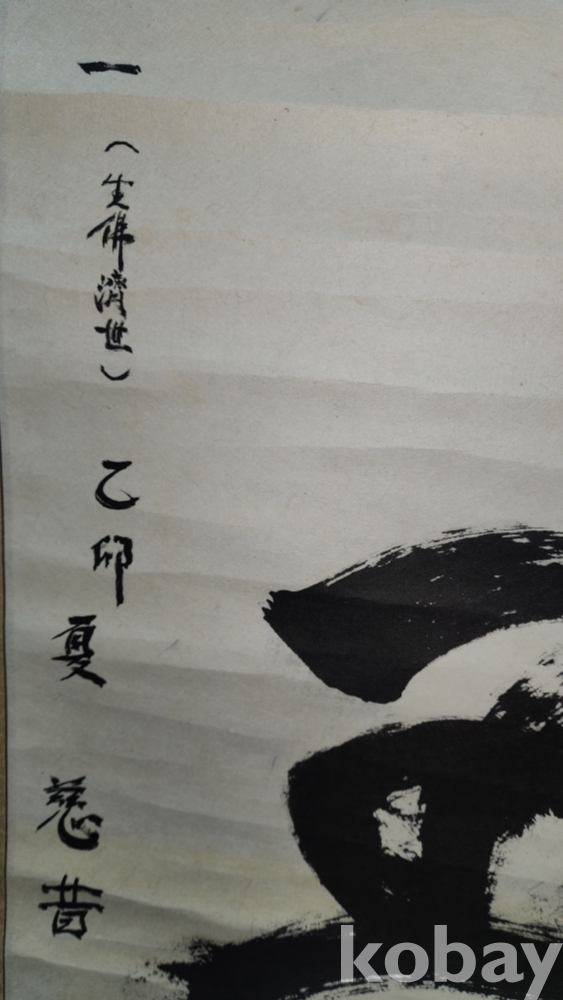 一
(生佛濟世)
乙卯
夏
慈昔
kobay